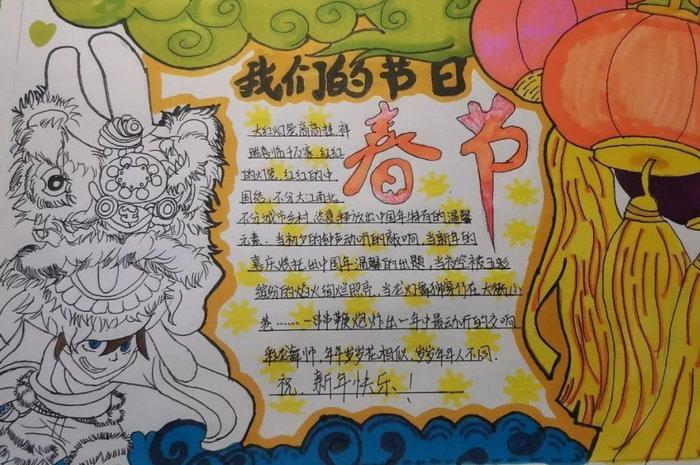 我们的节日
春节
大红灯笼高高挂,祥
瑞喜临千万家,红红
的灯笼,红红的中
国结,不分大江南北,
不分城市乡村,恣意释放出中国年特有的温馨
元素。当初夕的钟声动听的敲响,当新年的
喜庆烘托出中国年温馨的主题,当夜空被五彩
缤纷的焰火绚烂照亮,当龙灯舞狮穿行在大街小
巷……一串串鞭炮炸出一年中最动听的交响
彩龙舞师,年年岁岁花相似,岁岁年年人不同.
祝,新年快乐!